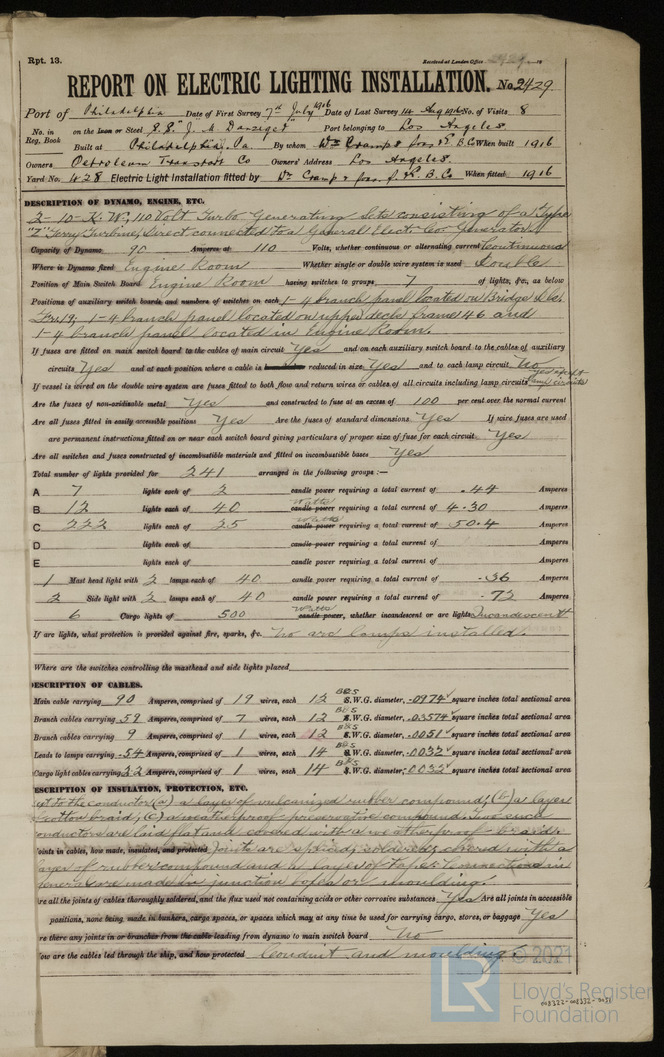 Rpt. 13.
Received at London Office
REPORT ON ELECTRIC LIGHTING INSTALLATION. No. 2429
Port of Philadelphia Date of First Survey 7th July 1916 Date of Last Survey 14 Aug 1916 No. of Visits 8
No. in Reg. Book on the Iron or Steel S.S. "J. M Danziger" Port belonging to Los Angeles
Built at Philadelphia, Pa. By whom Wm Cramp & Sons S. & E. B. Co When built 1916
Owners Petroleum Transport Co Owners' Address Los Angeles.
Yard No. 428 Electric Light Installation fitted by Wm Cramp & Sons S. & E. B. Co When fitted 1916
DESCRIPTION OF DYNAMO, ENGINE, ETC.
2-10-K.W. 110 Volt Turbo Generating Sets consisting of a Type
"Z" Terry Turbine, Direct connected to a General Electc Co Generator
Capacity of Dynamo 90 Amperes at 110 Volts, whether continuous or alternating current Continuous
Where is Dynamo fixed Engine Room Whether single or double wire system is used Double
Position of Main Switch Board Engine Room having switches to groups 7 of lights, &c., as below
Positions of auxiliary switch boards and numbers of switches on each 1-4 branch panel located on Bridge
1-4 branch panel located on upper deck frame 46 and
1-4 branch panel located in Engine Room.
If fuses are fitted on main switch board to the cables of main circuit Yes and on each auxiliary switch board to the cables of auxiliary
circuits Yes and at each position where a cable is reduced in size Yes and to each lamp circuit No
If vessel is wired on the double wire system are fuses fitted to both flow and return wires or cables of all circuits including lamp circuits
Are the fuses of non-oxidizable metal Yes and constructed to fuse at an excess of 100 per cent over the normal current
Are all fuses fitted in easily accessible positions Yes Are the fuses of standard dimensions Yes If wire fuses are used
are permanent instructions fitted on or near each switch board giving particulars of proper size of fuse for each circuit Yes
Are all switches and fuses constructed of incombustible materials and fitted on incombustible bases Yes
Total number of lights provided for 241 arranged in the following groups :—
A 7 lights each of 2 candle power requiring a total current of .44 Amperes
B 12 lights each of 40 Watts candle power requiring a total current of 4.30 Amperes
C 222 lights each of 25 Watts candle power requiring a total current of 50.4 Amperes
D lights each of candle power requiring a total current of Amperes
E lights each of candle power requiring a total current of Amperes
1 Mast head light with 2 lamps each of 40 candle power requiring a total current of .36 Amperes
2 Side light with 2 lamps each of 40 candle power requiring a total current of .72 Amperes
6 Cargo lights of 500 Watts candle power, whether incandescent or arc lights Incandescent
If arc lights, what protection is provided against fire, sparks, &c. No arc lamps installed.
Where are the switches controlling the masthead and side lights placed
DESCRIPTION OF CABLES.
Main cable carrying 90 Amperes, comprised of 19 wires, each 12 B&S S.W.G. diameter, .0974 square inches total sectional area
Branch cables carrying 59 Amperes, comprised of 7 wires, each 12 B&S S.W.G. diameter, .03574 square inches total sectional area
Branch cables carrying 9 Amperes, comprised of 1 wires, each 12 B&S S.W.G. diameter, .0051 square inches total sectional area
Leads to lamps carrying .54 Amperes, comprised of 1 wires, each 14 B&S S.W.G. diameter, .0032 square inches total sectional area
Cargo light cables carrying 22 Amperes, comprised of 1 wires, each 14 B&S S.W.G. diameter, .0032 square inches total sectional area
ESCRIPTION OF INSULATION, PROTECTION, ETC.
to the conductor (a) a layer of vulcanized rubber compound, (b) a layer
cotton braid, (c) a weatherproof preservative compound. Two such
onductors are laid flat and covered with a weatherproof braid.
oints in cables, how made, insulated, and protected Joints are spliced, soldered, covered with a
layer of rubber compound and a layer of tape. Connections in
general are made in junction boxes or moulding.
re all the joints of cables thoroughly soldered, and the flux used not containing acids or other corrosive substances Yes Are all joints in accessible
positions, none being made in bunkers, cargo spaces, or spaces which may at any time be used for carrying cargo, stores, or baggage Yes
re there any joints in or branches from the cable leading from dynamo to main switch board No
ow are the cables led through the ship, and how protected Conduit and moulding.
© 2021
LR
Lloyd's Register
Foundation
008322-008332-0031